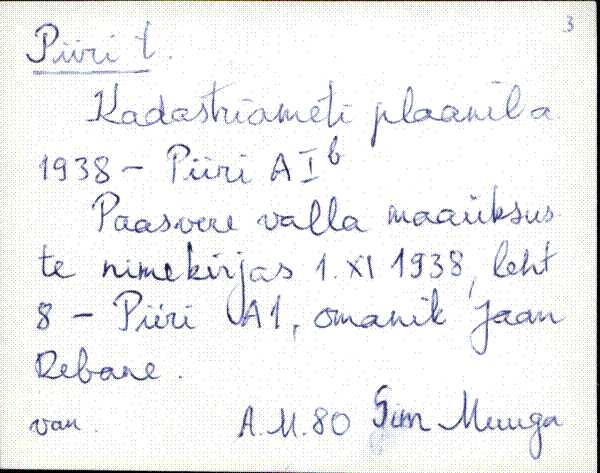 3
Piiri t.
Kadastriameti plaanil a
1938 - Piiri A I b
Paasvere valla maaüksus
te nimekirjas 1. XI 1938, leht
8 - Piiri A1, omanik Jaan
Rebane.
van. A.M. 80 Sim Muuga